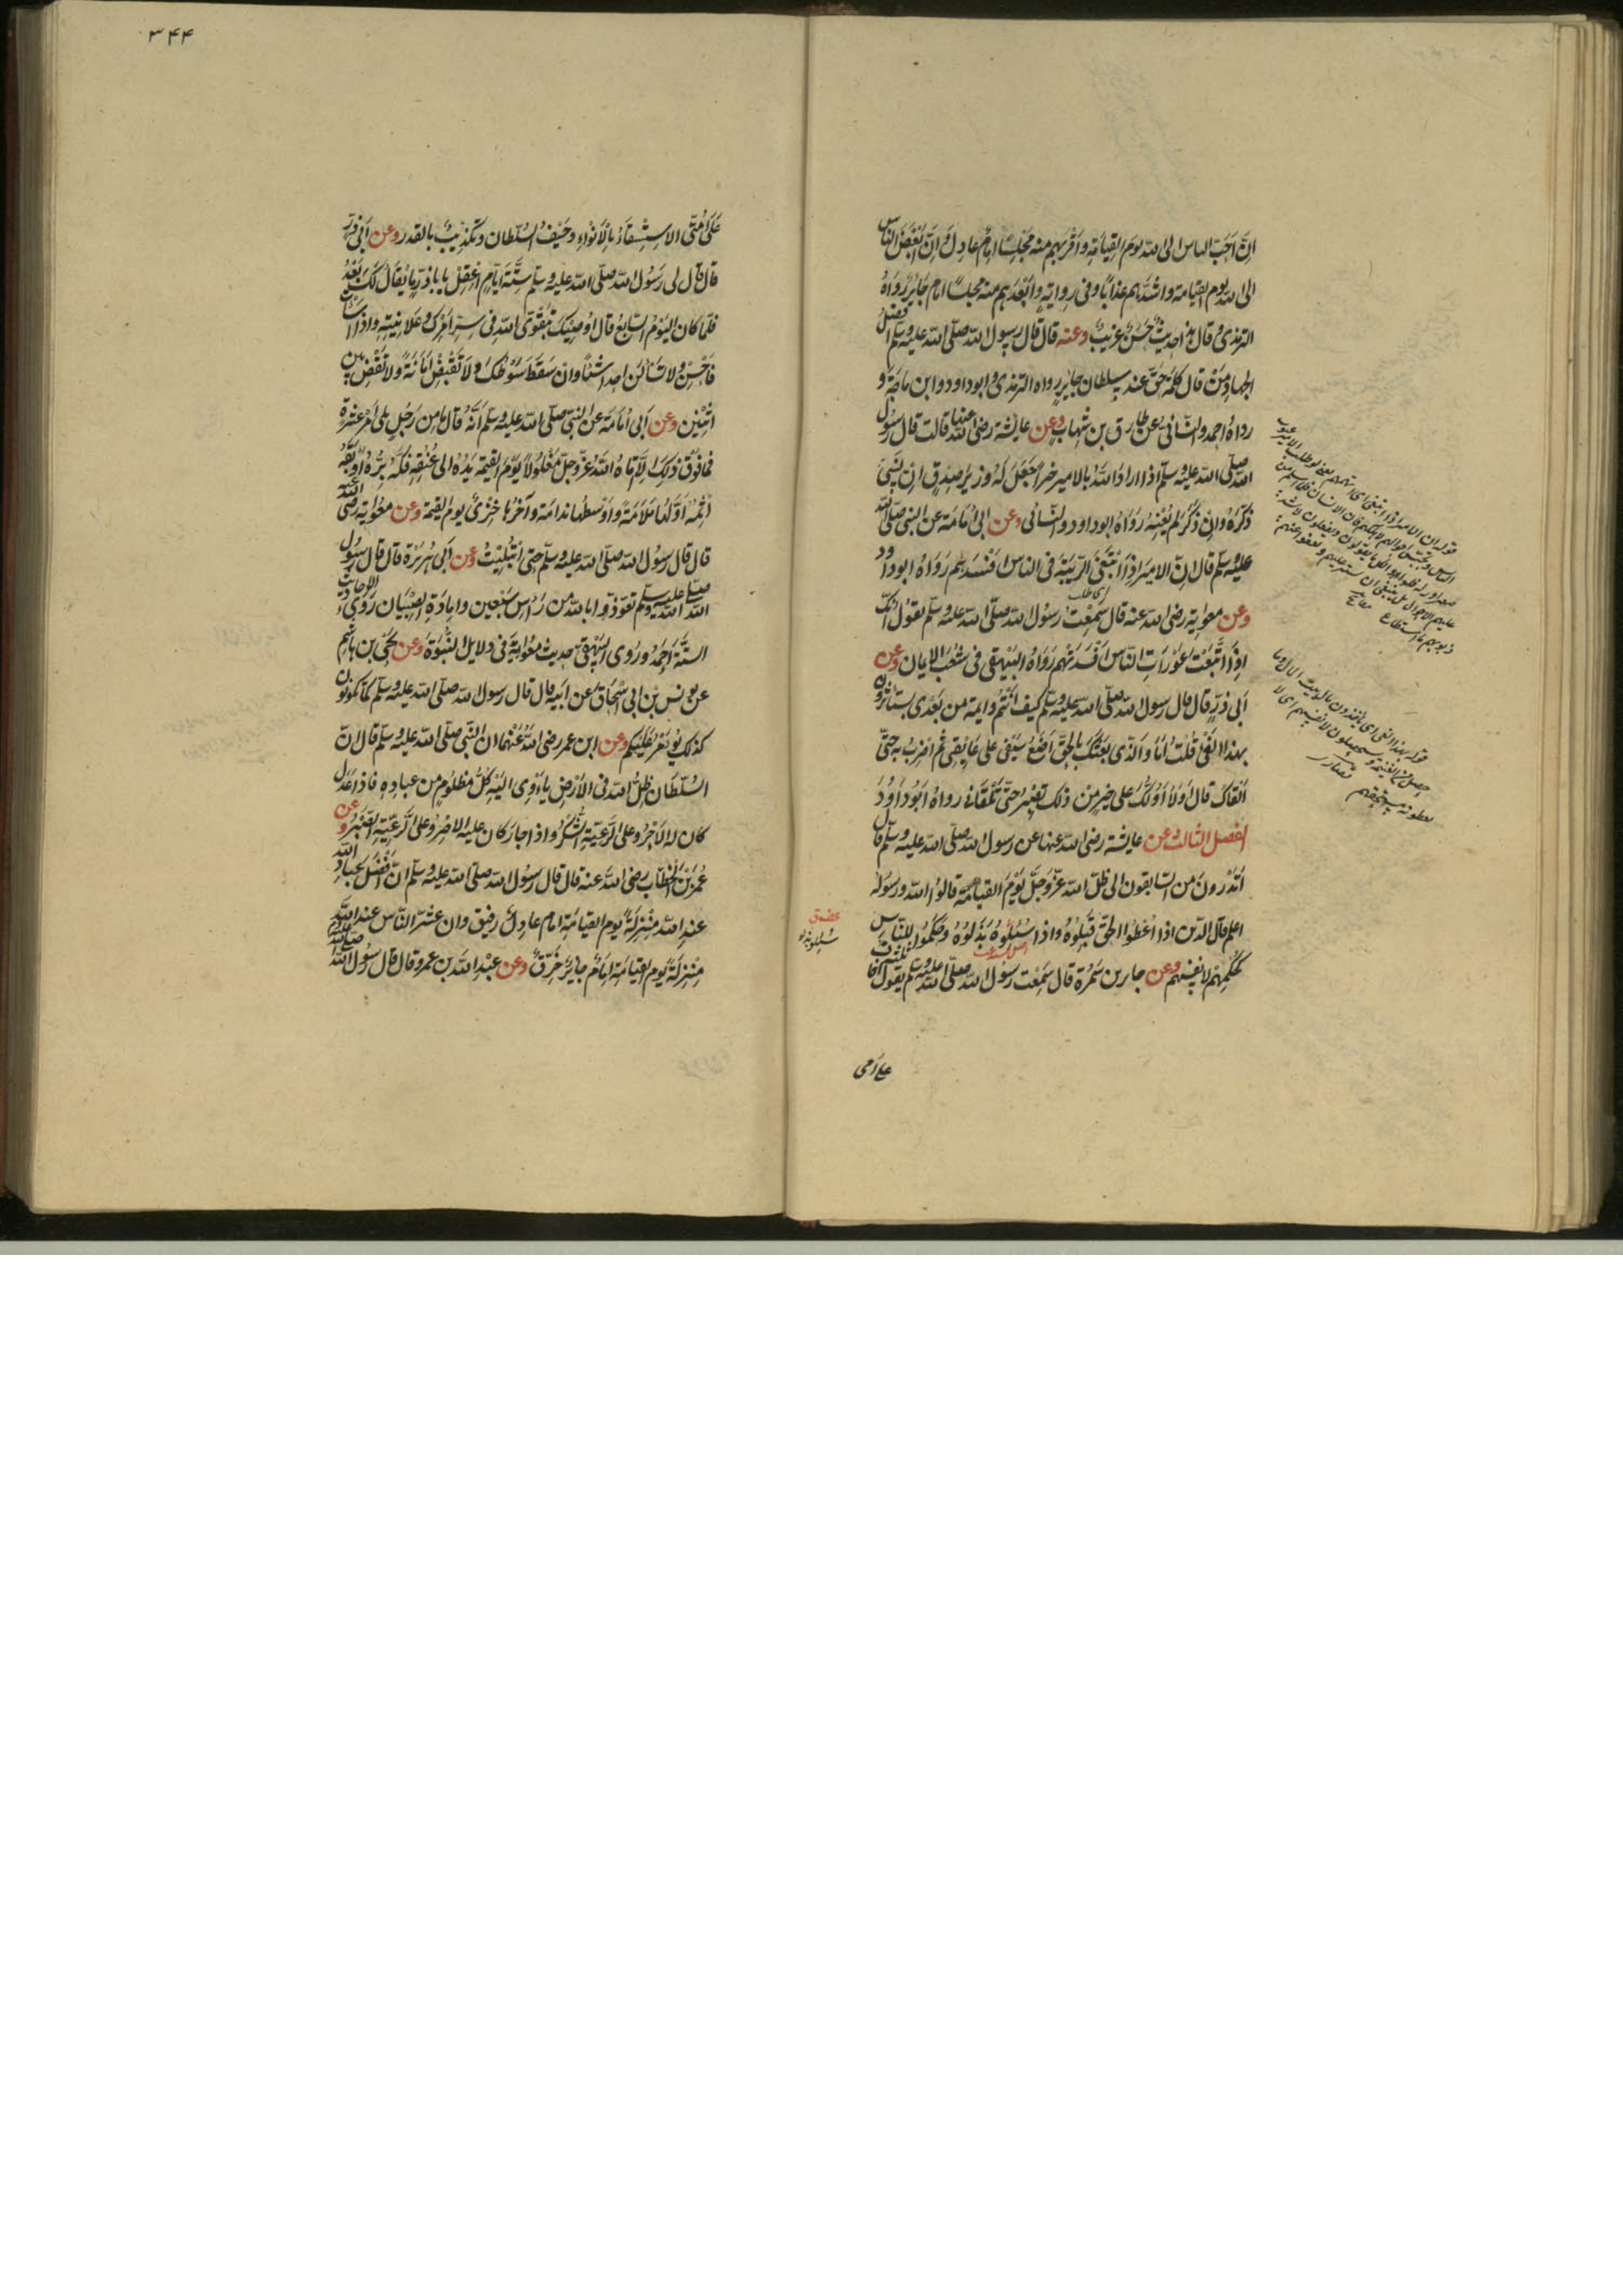 ان احب الناس الى الله يوم القيامة واقربهم منه مجلسا امام عادل وان ابغض الناس
الى الله يوم القيامة واشدهم عذابا وفي رواية وابعدهم منه مجلسا امام جاير رواه
الترمذي وقال هذا حديث حسن غريب وعنه قال قال رسول الله صلى الله عليه وسلم افضل
الجهاد من قال كلمة حق عند سلطان جاير رواه الترمذي وابو داود وابن ماجة و
رواه احمد والنسائي عن طارق بن شهاب وعن عايشة رضى الله عنها قالت قال رسول
الله صلى الله عليه وسلم اذا اراد الله بالامير خيرا جعل له وزير صدق ان نسي
ذكره وان ذكر لم يعنه رواه ابو داود والنسائي وعن ابي امامة عن النبي صلى الله
عليه وسلم قال ان الامير اذا ابتغى الريبة في الناس افسدهم رواه ابو داود
اى طلب
وعن معوية رضى الله عنه قال سمعت رسول الله صلى الله عليه وسلم يقول انك
اذا اتبعت عورات الناس افسدتهم رواه البيهقي في شعب الايمان وعن
ابي ذر قال قال رسول الله صلى الله عليه وسلم كيف انتم وايمة من بعدي يستاثرون
بهذا الفئ قلت اما والذي بعثك بالحق اضع سيفي على عاتقي ثم اضرب به حتى
القاك قال اولا ادلك على خير من ذلك تصبر حتى تلقاني رواه ابو داود
الفصل الثالث وعن عايشة رضى الله عنها عن رسول الله صلى الله عليه وسلم قال
اتدرون من السابقون الى ظل الله عز وجل يوم القيامة قالوا الله ورسوله
اعلم قال الذين اذا اعطوا الحق قبلوه واذا سئلوه بذلوه وحكموا للناس
كحكمهم لانفسهم وعن جابر بن سمرة قال سمعت رسول الله صلى الله عليه وسلم يقول ثلثة اخاف
على امتي
٣٤٤
على امتي الاستسقاء بالانواء وحيف السلطان وتكذيب بالقدر وعن ابي ذر
قال قال لي رسول الله صلى الله عليه وسلم ستة ايام اعقل يا باذر ما يقال لك بعد
فلما كان اليوم السابع قال اوصيك بتقوى الله في سر امرك وعلانيته واذا اسات
فاحسن ولا تسالن احدا شيئا وان سقط سوطك ولا تقبض امانة ولا تقض بين
اثنين وعن ابي امامة عن النبي صلى الله عليه وسلم انه قال ما من رجل يلي امر عشرة
فما فوق ذلك الا اتاه الله عز وجل مغلولا يوم القيمة يده الى عنقه فكه بره او اوبقه
اثمه اولها ملامة واوسطها ندامة وآخرها خزى يوم القيمة وعن معوية رضى الله عنه
قال قال رسول الله صلى الله عليه وسلم حتى ابتليت وعن ابي هريرة قال قال رسول
الله صلى الله عليه وسلم تعوذوا بالله من راس سبعين وامارة الصبيان روى الاحاديث
الستة احمد وروى البيهقي حديث معوية في دلايل النبوة وعن يحيى بن هاشم
عن يونس بن ابي اسحاق عن ابيه قال قال رسول الله صلى الله عليه وسلم كما تكونون
كذلك يؤمر عليكم وعن ابن عمر رضى الله عنهما ان النبي صلى الله عليه وسلم قال ان
السلطان ظل الله في الارض ياوى اليه كل مظلوم من عباده فاذا عدل
كان له الاجر وعلى الرعية الشكر واذا جار كان عليه الاصر وعلى الرعية الصبر وعن
عمر بن الخطاب رضى الله عنه قال قال رسول الله صلى الله عليه وسلم ان افضل عباد الله
عند الله منزلة يوم القيامة امام عادل رفيق وان شر الناس عند الله
منزلة يوم القيامة امام جاير خرق وعن عبد الله بن عمرو قال قال رسول الله صلى الله عليه وسلم